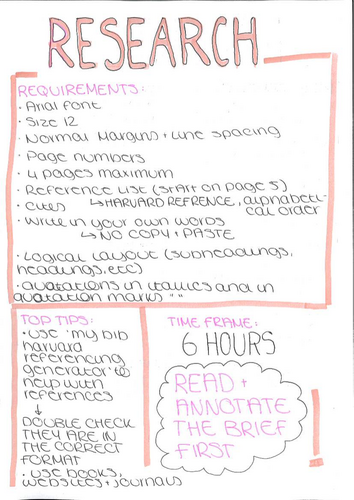 RESEARCH
REQUIREMENTS:
• Arial font
• Size 12
• Normal Margins + Line spacing
• Page numbers
• 4 pages maximum
• Reference List (start on page 5)
• Cites ↳ HARVARD REFRENCE, alphabeti-
cal order
• Write in your own words
↳ NO COPY + PASTE
• Logical Layout (subheadings,
headings, etc)
• quotations in italics and in
quotation marks " "
TOP TIPS:
• use 'my bib
harvard
referencing
generator' to
help with
references
↓
DOUBLE CHECK
THEY ARE IN
THE CORRECT
FORMAT
• use books,
websites + journals
TIME FRAME:
6 HOURS
READ +
ANNOTATE
THE BRIEF
FIRST
!